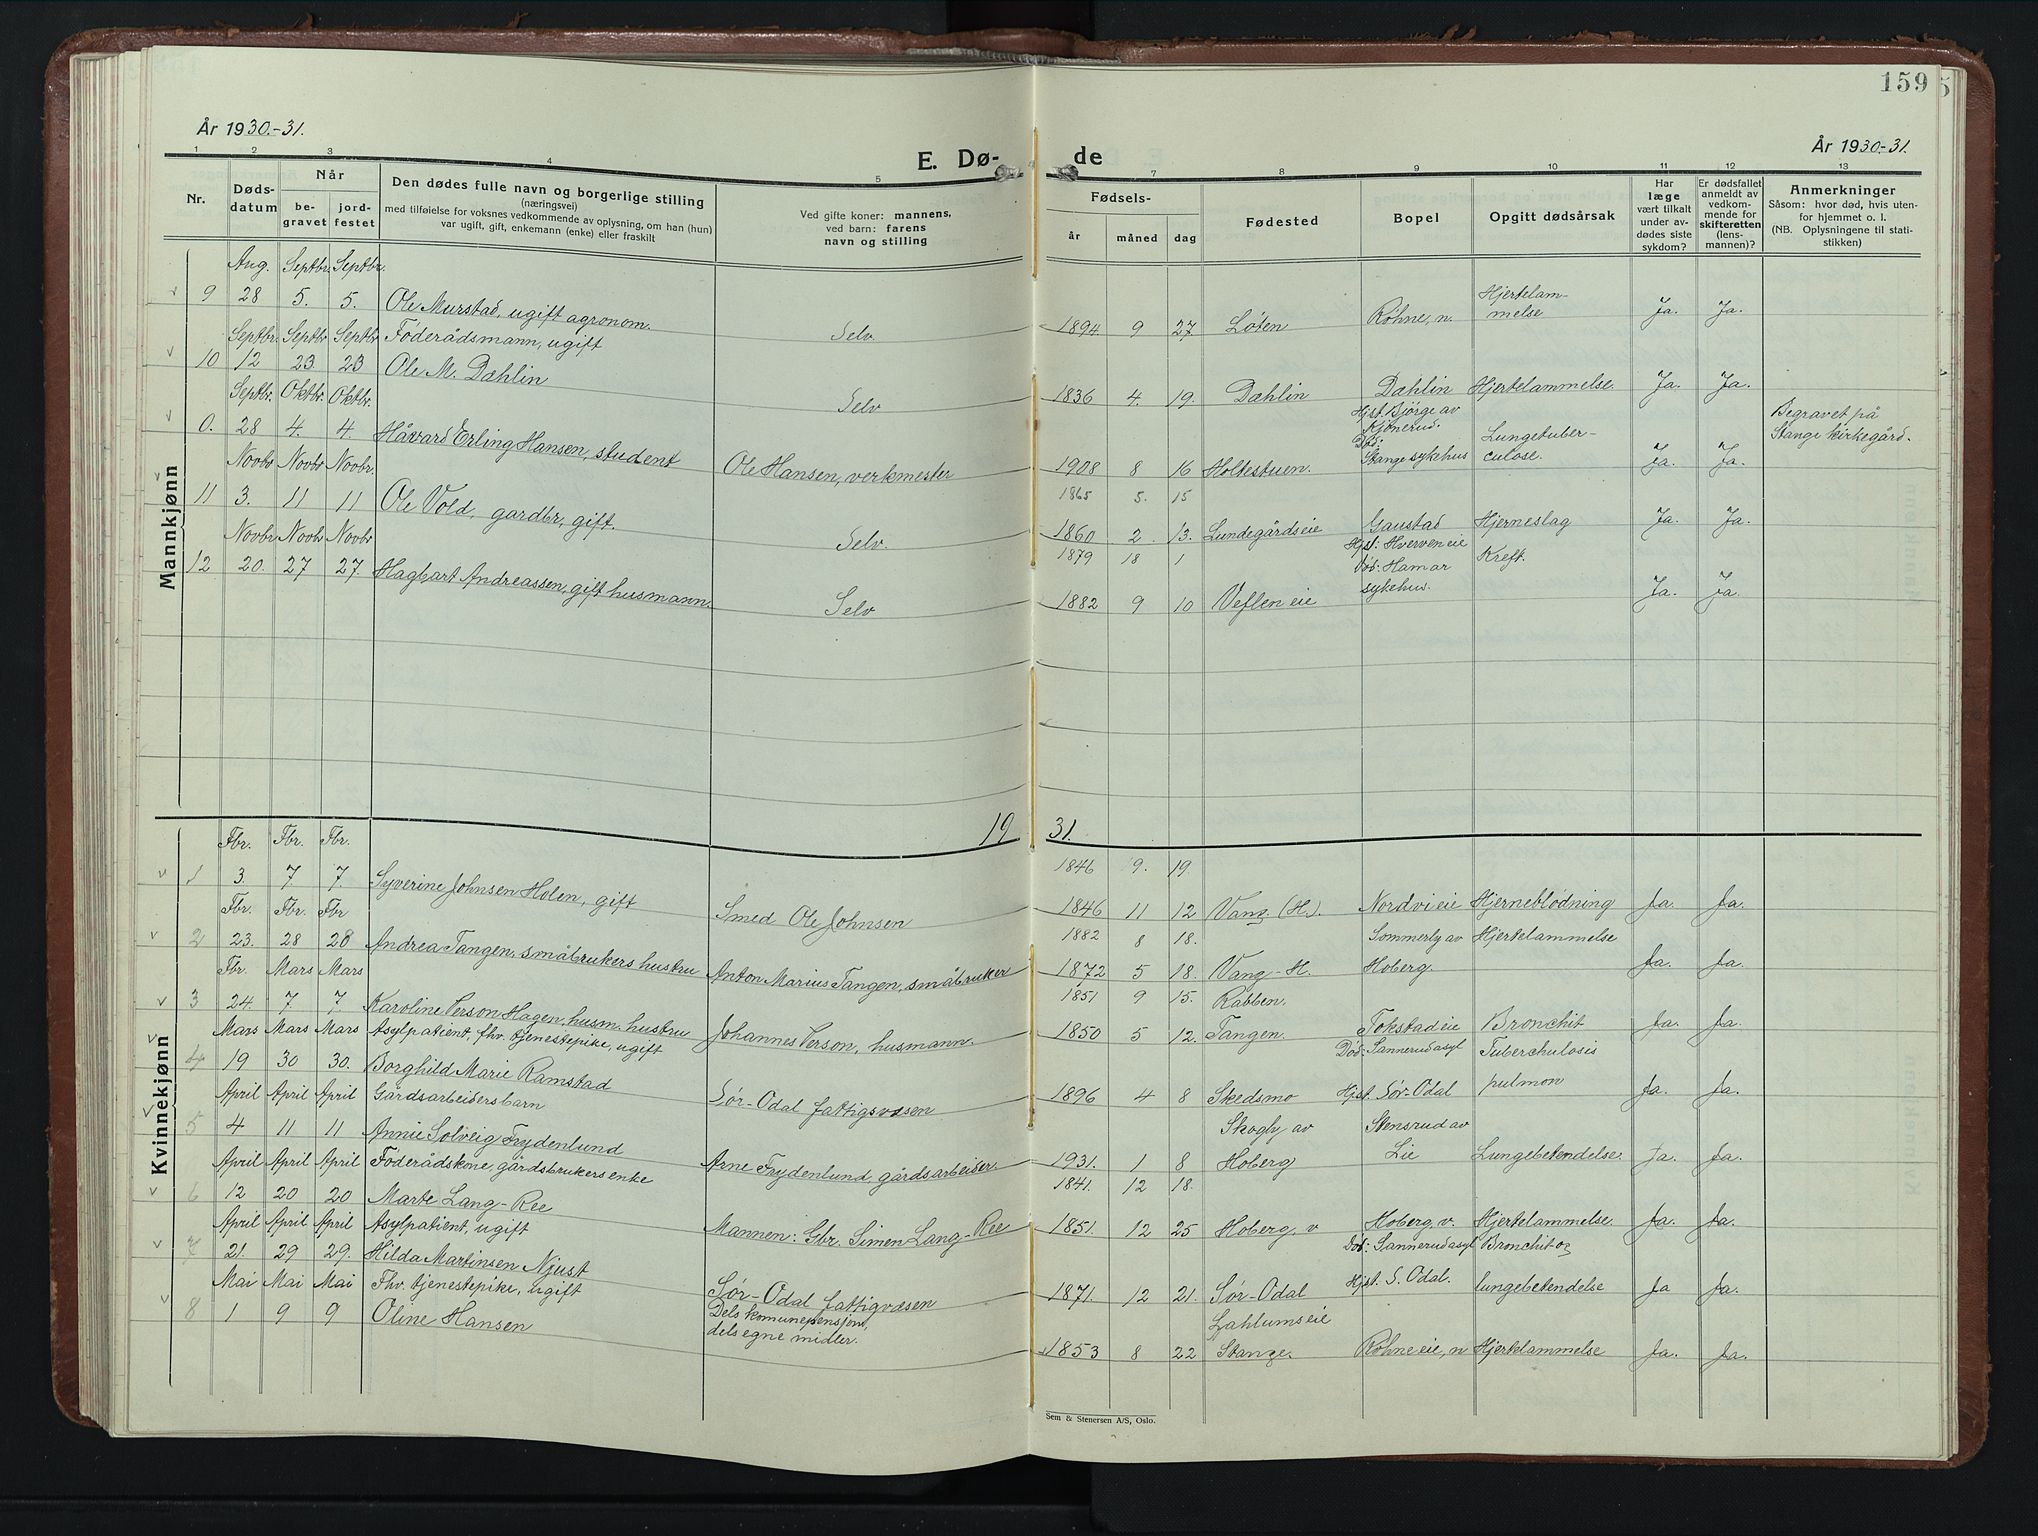 159
År 1930.-31.
År 1930-31.
E. Dø-
de
1 2 3 4 5 7 8 9 10 11 12 13
Nr.
Døds-
datum
Når
be-
gravet
jord-
festet
Den dødes fulle navn og borgerlige stilling
(næringsvei)
med tilføielse for voksnes vedkommende av oplysning, om han (hun)
var ugift, gift, enkemann (enke) eller fraskilt
Ved gifte koner: mannens,
ved barn: farens
navn og stilling
Fødsels-
år måned dag
Fødested
Bopel
Opgitt dødsårsak
Har
læge
vært tilkalt
under av-
dødes siste
sykdom?
Er dødsfallet
anmeldt av
vedkom-
mende for
skifteretten
(lens-
mannen)?
Anmerkninger
Såsom: hvor død, hvis uten-
for hjemmet o. l.
(NB. Oplysningene til stati-
stikken)
Mannkjønn
Aug. Septbr. Septbr.
9 28 5. 5. Ole Murstad, ugift agronom. Selv 1894 9 27 Løten Røhne, n. Hjertelam-
melse Ja. Ja.
Septbr. Septbr Septbr Føderådsmann, ugift
10 12 23 23 Ole M. Dæhlin Selv 1836 4. 19. Dæhlin Dæhlin Hjertelammelse. Ja. Ja.
Septbr. Oktbr. Oktbr.
0. 28 4. 4. Håvard Erling Hansen, student Ole Hansen, verkmester 1908 8 16 Holtestuen. Hjst. Bjørge av
Kjønerud.
Død:
Stange sykehus Lungetuber-
culose. Ja. Ja. Begravet på
Stange kirkegård.
Novbr Novbr Novbr. 1865 5. 15
11 3. 11 11 Ole Vold, gardbr, gift. Selv. 1860 2. 13. Lundegårdseie Gaustad Hjerneslag Ja. Ja.
Novbr Novbr Novbr 1879 18 1
12 20. 27 27. Hagbart Andreassen, gift husmann. Selv 1882 9 10 Veflen eie Hjst: Hverven eie
Død: Hamar
sykehus. Kreft. Ja. Ja.
1931.
Kvinnekjønn
Fbr. Fbr. Fbr. 1846 9. 19.
1 3. 7 7. Syverine Johnsen Holen, gift Smed Ole Johnsen 1846 11 12 Vang (H.). Nordvi eie Hjerneblødning Ja. Ja.
Fbr. Fbr. Fbr 1882 8 18.
2 23. 28 28 Andrea Tangen, småbrukers hustru Anton Marius Tangen, småbruker 1872 5 18. Vang-H. Sommerly av
Hoberg. Hjertelammelse Ja. Ja.
Fbr. Mars Mars 1851 9 15. Rabben.
3 24. 7 7. Karoline Verson Hagen, husm. hustru Johannes Verson, husmann. 1850 5 12. Tangen. Tokstad eie Bronchit Ja. Ja.
Mars Mars Mars Asylpatient, fhv. tjenestepike, ugift
4 19 30 30. Borghild Marie Ramstad Sør-Odal fattigvæsen 1896 4 8 Skedsmo Død: Sannerudasyl
Hjst. Sør-Odal Tuberchulosis
pulmon Ja. Ja.
April April April Gårdsarbeidersbarn
5 4 11 11 Annie Solveig Frydenlund Arne Frydenlund, gårdsarbeider. 1931. 1 8 Skogly av
Hoberg Stensrud av
Lie Lungebetendelse. Ja. Ja.
April April April Føderådskone, gårdsbrukers enke 1841. 12 18.
6 12 20 20 Marte Lang-Ree Mannen: Gbr. Simen Lang-Ree 1851. 12 25 Hoberg, v Hoberg, v. Hjertelammelse. Ja. Ja.
April April April Asylpatient, ugift
7 21. 29 29. Hilda Martinsen Njust Sør-Odal fattigvæsen 1871. 12 21. Sør-Odal Død: Sannerudasyl
Hjst. S. Odal. Bronchit og
lungebetendelse Ja Ja.
Mai Mai Mai Fhv. tjenestepike, ugift
8 1 9 9 Oline Hansen Dels komunepensjon,
dels egne midler. 1853 8 22 Lahlumseie
Stange. Røhne eie, n Hjertelammelse Ja. Ja.
Sem & Stenersen A/S, Oslo.